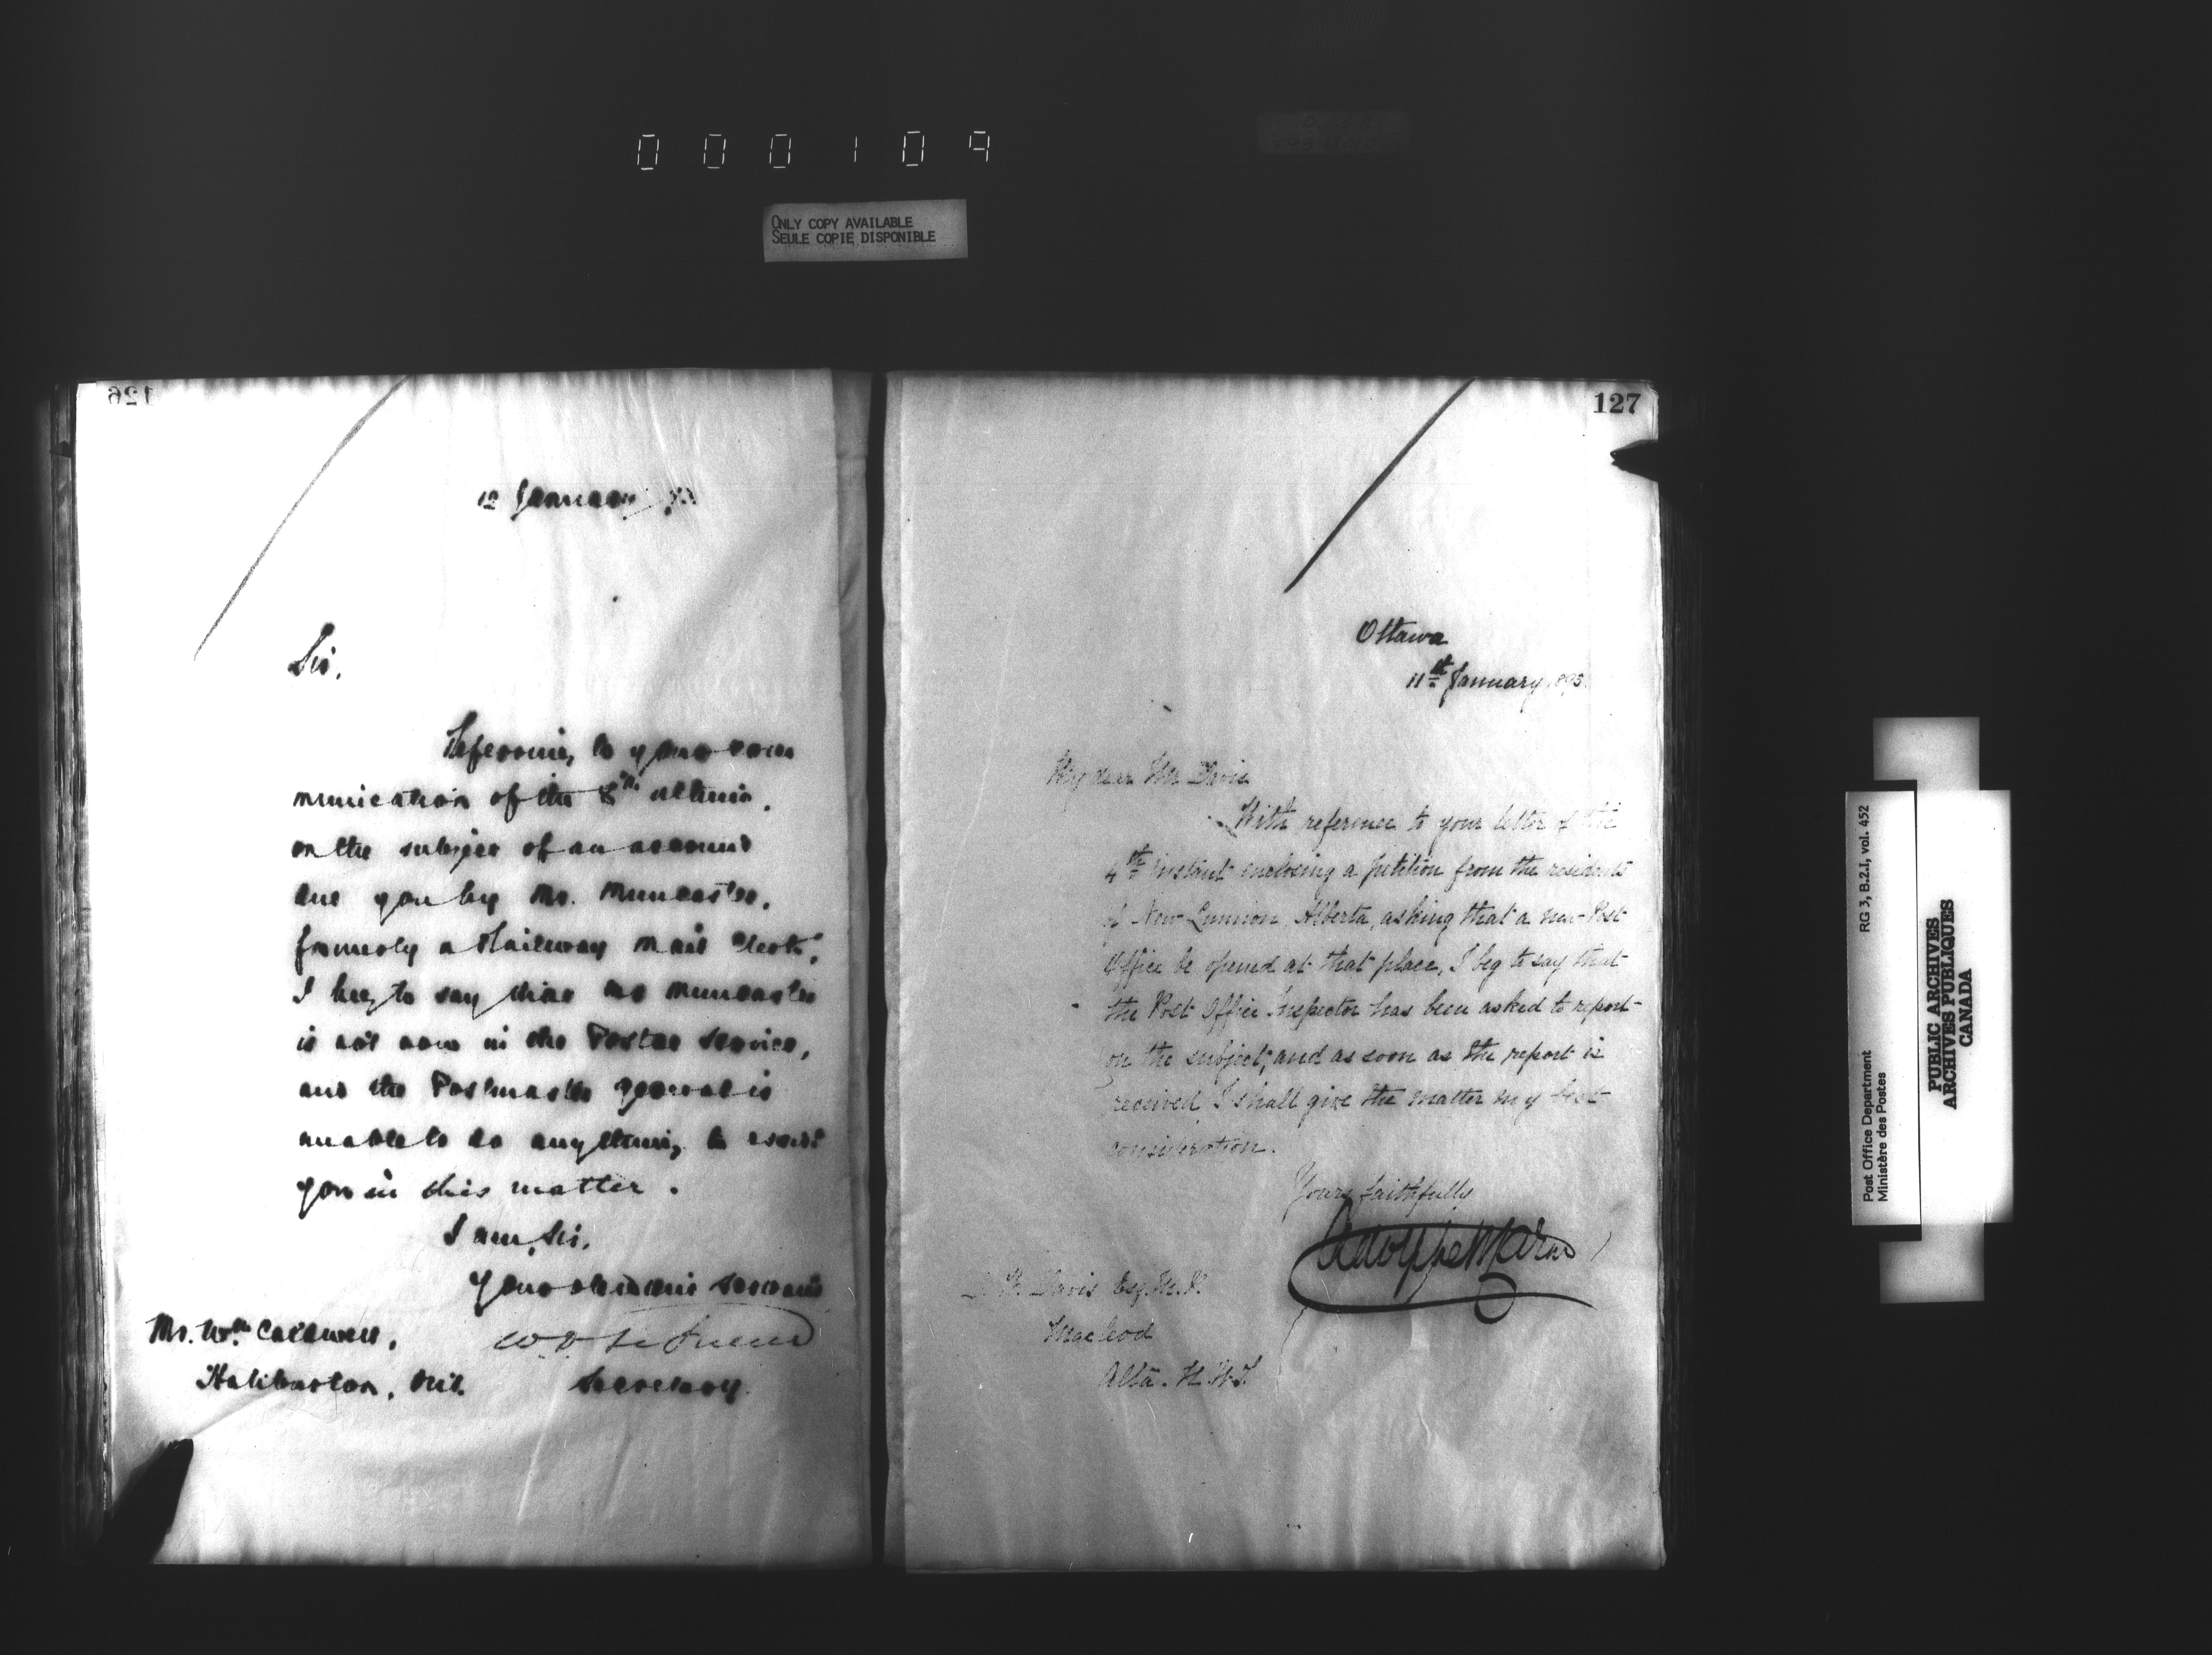 000109
ONLY COPY AVAILABLE
SEULE COPIE DISPONIBLE
126
12 January
Sir,
Referring to your com
munication of the 8th ultimo,
on the subject of an account
due you by Mr. Muncaster,
formerly a Railway Mail Clerk,
I beg to say that Mr Muncaster
is not now in the Postal Service,
and the Postmaster General is
unable to do anything to assist
you in this matter.
I am, Sir,
Your obedient servant
Secretary
Mr. Wm. Caldwell,
Haliburton, Ont.
127
Ottawa
11th January
My dear Mr Davis
With reference to your letter of the
4th instant enclosing a petition from the residents
of New Alberta, asking that a new Post
Office be opened at that place, I beg to say that
the Post Office Inspector has been asked to report
on the subject, and as soon as the report is
received I shall give the matter my best
consideration.
Yours faithfully
Davis Esq. M.P.
Macleod
Alta. N.W.T.
RG 3, B.2.I, vol. 452
Post Office Department
Ministère des Postes
PUBLIC ARCHIVES
ARCHIVES PUBLIQUES
CANADA